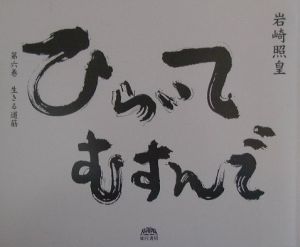 岩崎照皇
ひらいて
むすんで
第六巻 生きる道筋